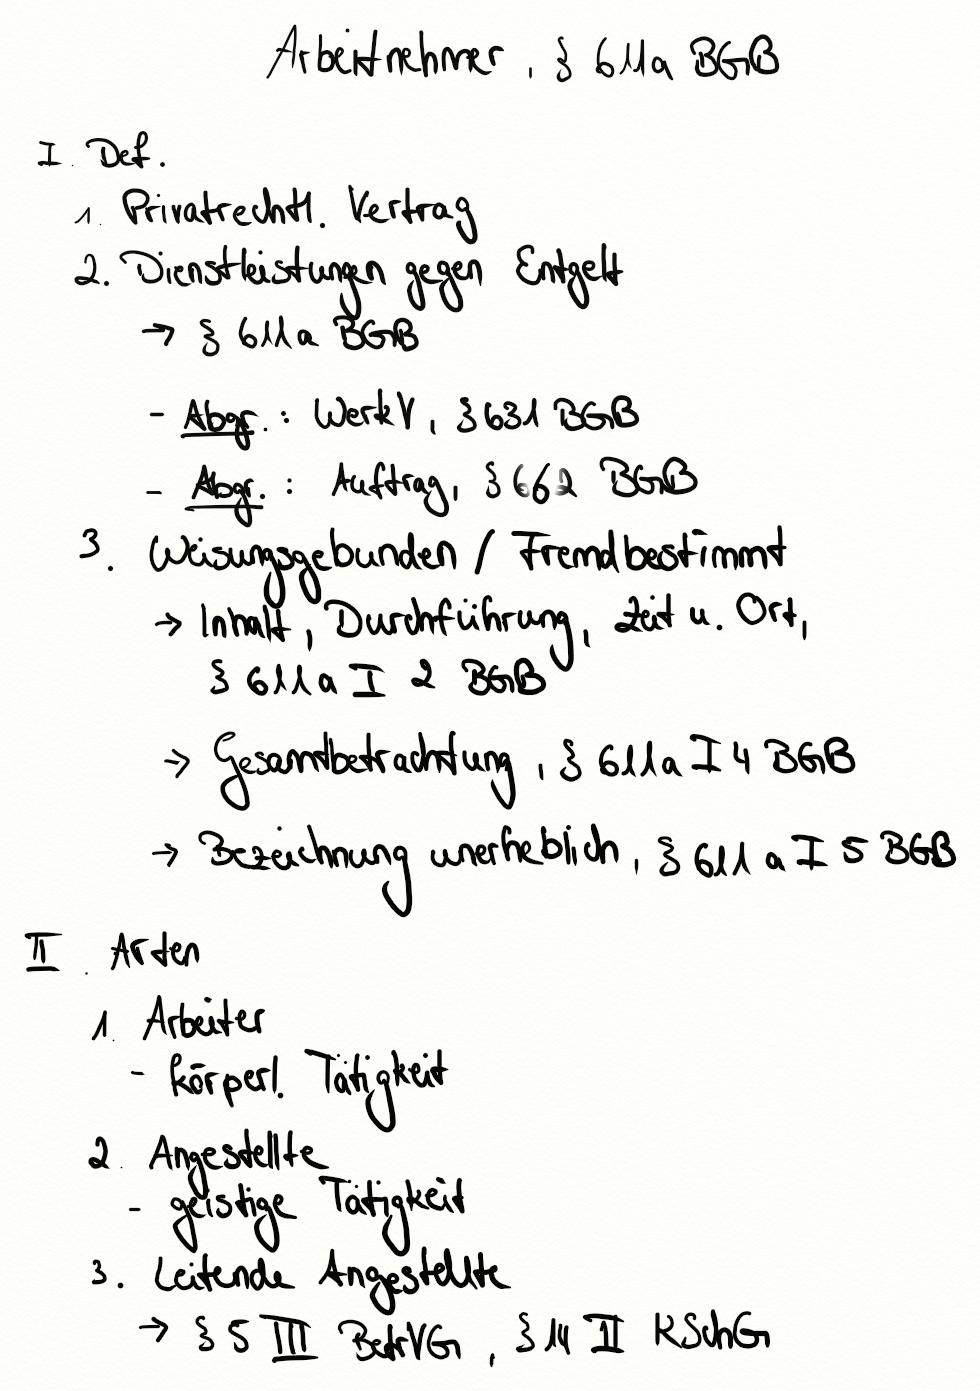 Arbeitnehmer, § 611a BGB
I. Def.
1. Privatrechtl. Vertrag
2. Dienstleistungen gegen Entgelt
→ § 611a BGB
- Abgr.: WerkV, § 631 BGB
- Abgr.: Auftrag, § 662 BGB
3. Weisungsgebunden / Fremdbestimmt
→ Inhalt, Durchführung, Zeit u. Ort,
§ 611a I 2 BGB
→ Gesamtbetrachtung, § 611a I 4 BGB
→ Bezeichnung unerheblich, § 611a I 5 BGB
II. Arten
1. Arbeiter
- körperl. Tätigkeit
2. Angestellte
- geistige Tätigkeit
3. Leitende Angestellte
→ § 5 III BetrVG, § 14 II KSchG